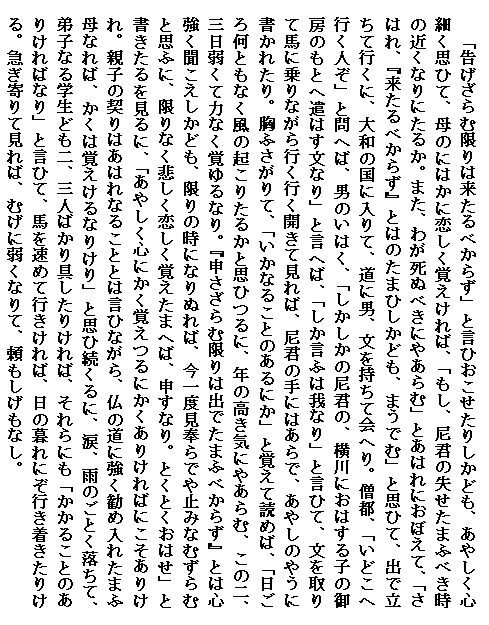 「告げざらむ限りは来たるべからず」と言ひおこせたりしかども、あやしく心
細く思ひて、母のにはかに恋しく覚えければ、「もし、尼君の失せたまふべき時
の近くなりにたるか。また、わが死ぬべきにやあらむ」とあはれにおぼえて、「さ
はれ、『来たるべからず』とはのたまひしかども、まうでむ」と思ひて、出で立
ちて行くに、大和の国に入りて、道に男、文を持ちて会へり。僧都、「いどこへ
行く人ぞ」と問へば、男のいはく、「しかしかの尼君の、横川におはする子の御
房のもとへ遣はす文なり」と言へば、「しか言ふは我なり」と言ひて、文を取り
て馬に乗りながら行く行く開きて見れば、尼君の手にはあらで、あやしのやうに
書かれたり。胸ふさがりて、「いかなることのあるにか」と覚えて読めば、「日ご
ろ何ともなく風の起こりたるかと思ひつるに、年の高き気にやあらむ、この二、
三日弱くて力なく覚ゆるなり。『申さざらむ限りは出でたまふべからず』とは心
強く聞こえしかども、限りの時になりぬれば、今一度見奉らでや止みなむずらむ
と思ふに、限りなく悲しく恋しく覚えたまへば、申すなり。とくとくおはせ」と
書きたるを見るに、「あやしく心にかく覚えつるにかくありければにこそありけ
れ。親子の契りはあはれなることとは言ひながら、仏の道に強く勧め入れたまふ
母なれば、かくは覚えけるなりけり」と思ひ続くるに、涙、雨のごとく落ちて、
弟子なる学生ども二、三人ばかり具したりければ、それらにも「かかることのあ
りければなり」と言ひて、馬を速めて行きければ、日の暮れにぞ行き着きたりけ
る。急ぎ寄りて見れば、むげに弱くなりて、頼もしげもなし。